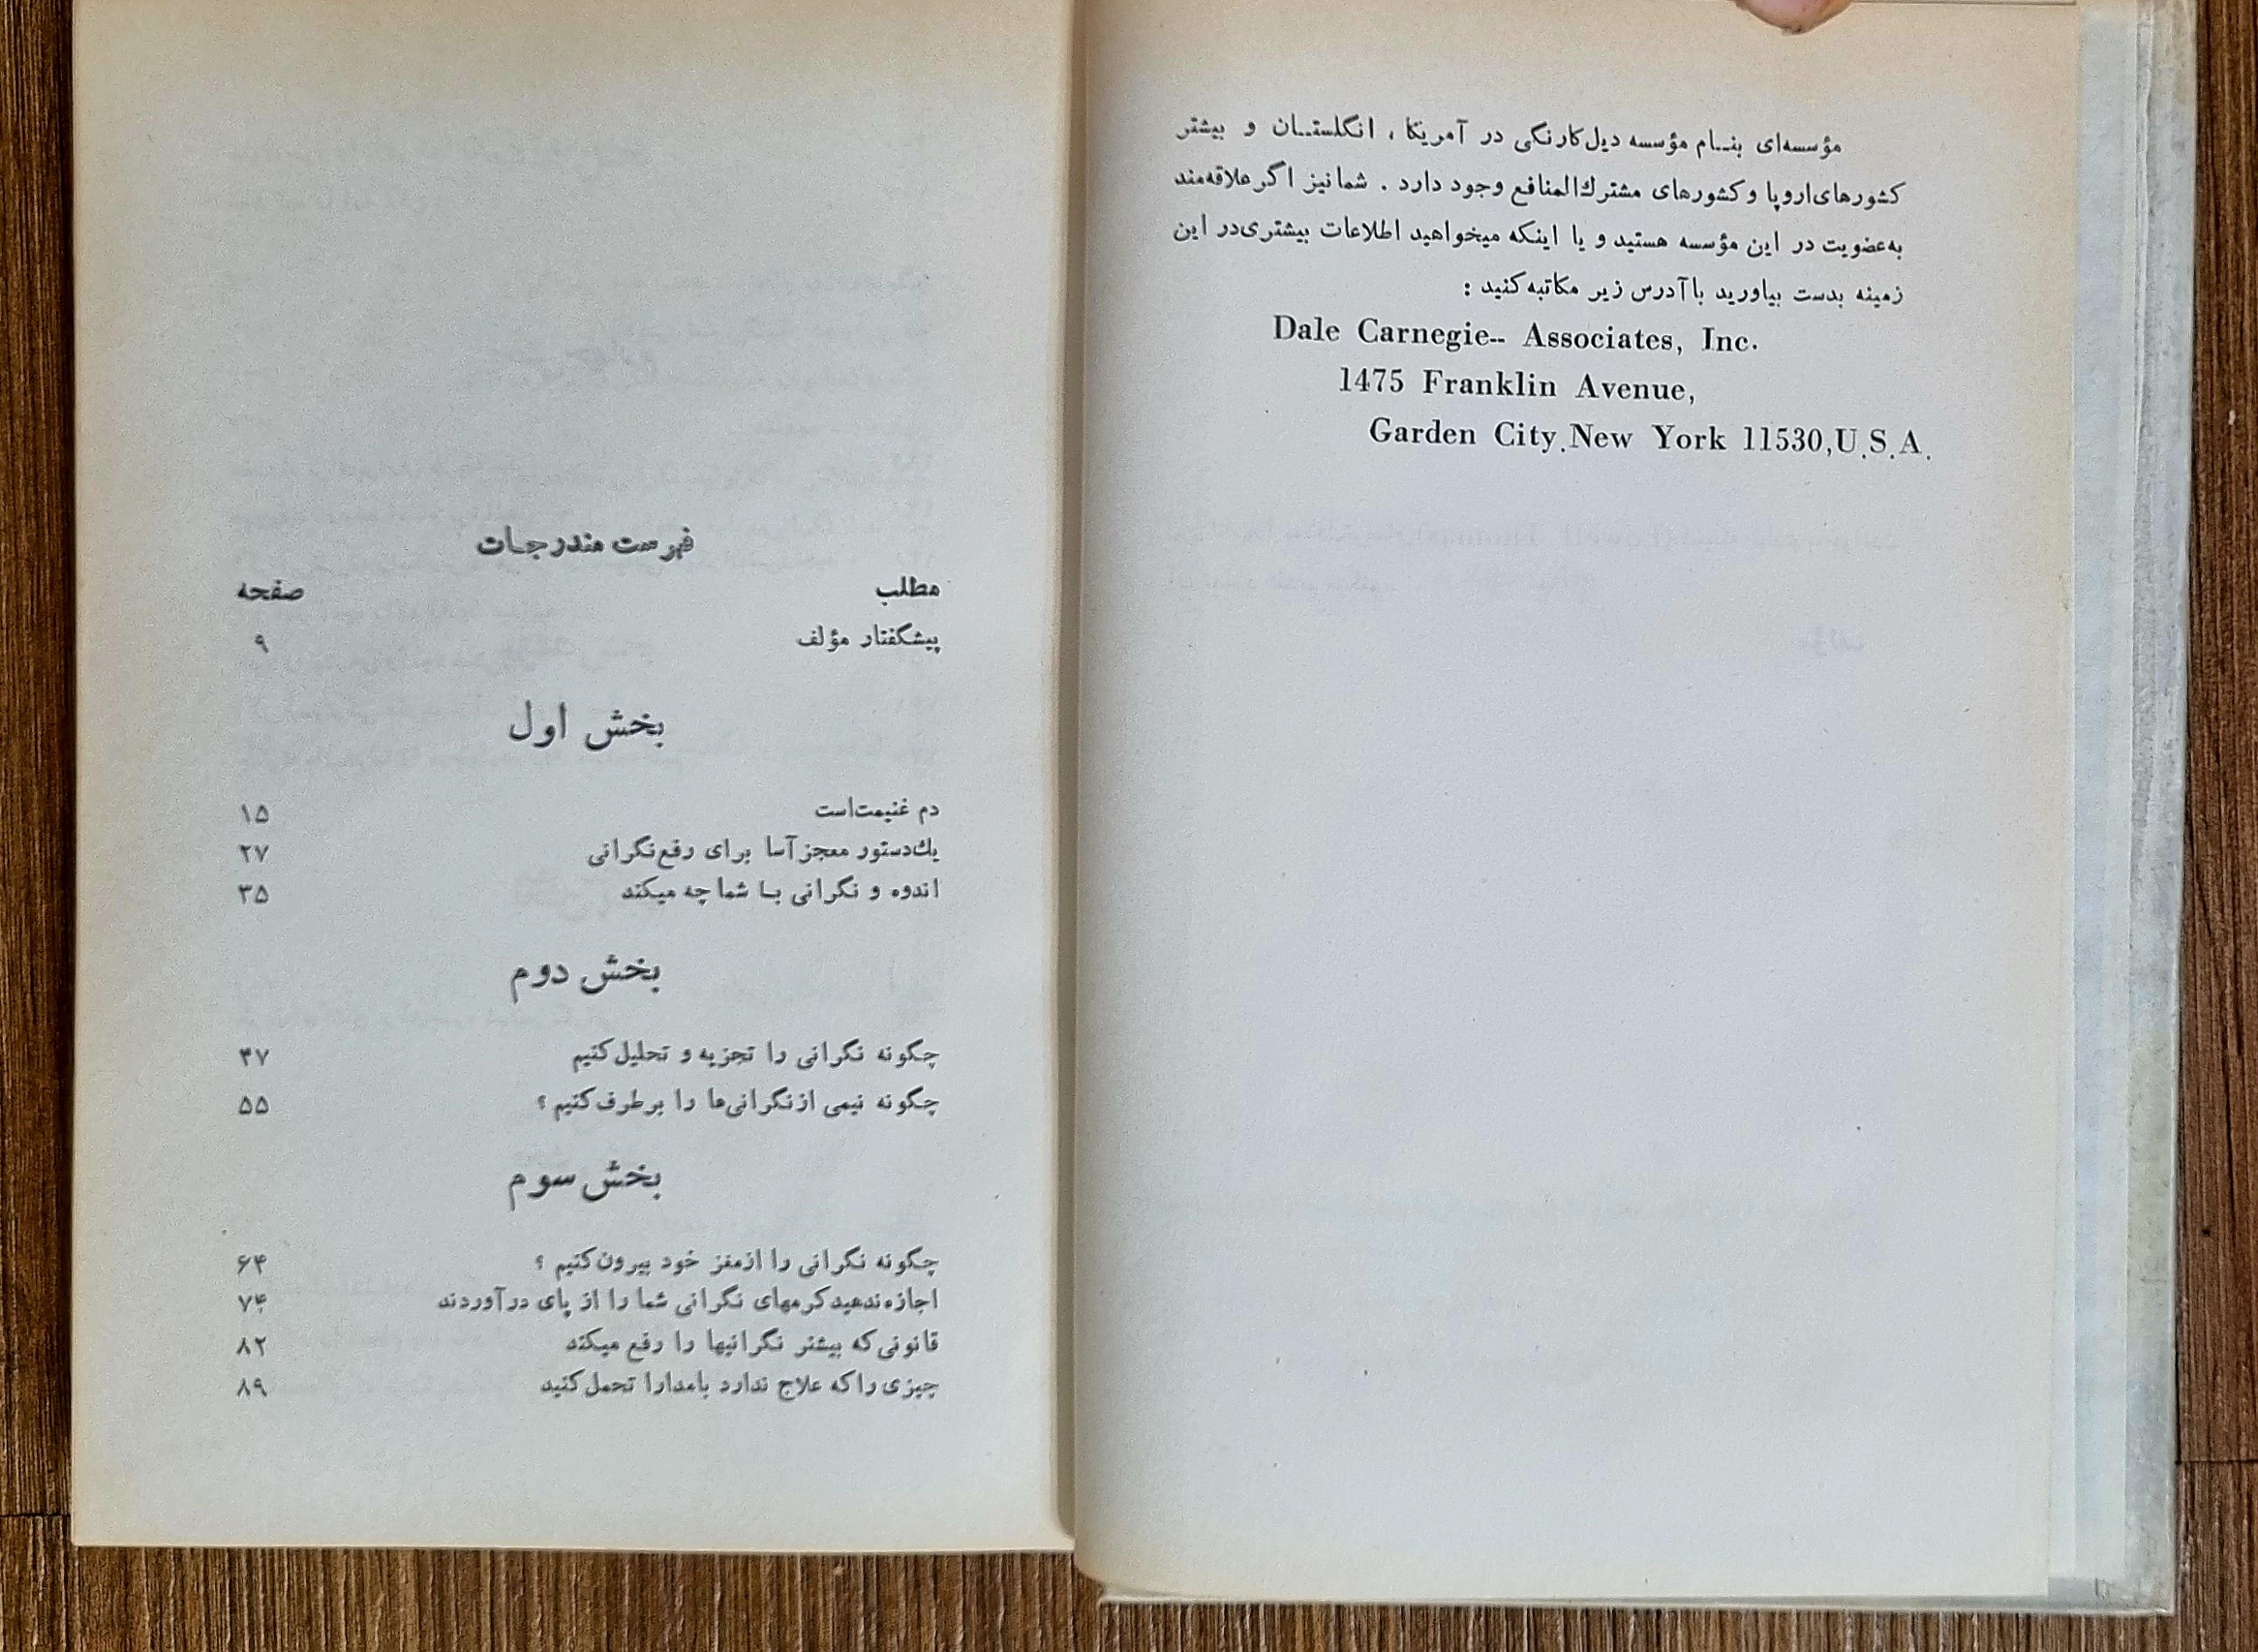 مؤسسه‌ای بنـام مؤسسه دیل‌کارنگی در آمریکا ، انگلستـان و بیشتر
کشورهای‌اروپا و کشورهای مشترك‌المنافع وجود دارد . شما نیز اگر علاقه‌مند
به‌عضویت در این مؤسسه هستید و یا اینکه میخواهید اطلاعات بیشتری‌در این
زمینه بدست بیاورید با آدرس زیر مکاتبه‌کنید :
Dale Carnegie-- Associates, Inc.
1475 Franklin Avenue,
Garden City.New York 11530,U.S.A.
فهرست مندرجـات
مطلب صفحه
پیشگفتار مؤلف ۹
بخش اول
دم غنیمت‌است ۱۵
یك‌دستور معجزآسا برای رفع‌نگرانی ۲۷
اندوه و نگرانی بـا شما چه میکند ۳۵
بخش دوم
چگونه نگرانی را تجزیه و تحلیل‌کنیم ۴۷
چگونه نیمی از نگرانی‌ها را برطرف‌کنیم ؟ ۵۵
بخش سوم
چگونه نگرانی را ازمغز خود بیرون‌کنیم ؟ ۶۴
اجازه‌ندهید کرمهای نگرانی شما را از پای درآوردند ۷۴
قانونی‌که بیشتر نگرانیها را رفع میکند ۸۲
چیزی راکه علاج ندارد بامدارا تحمل‌کنید ۸۹